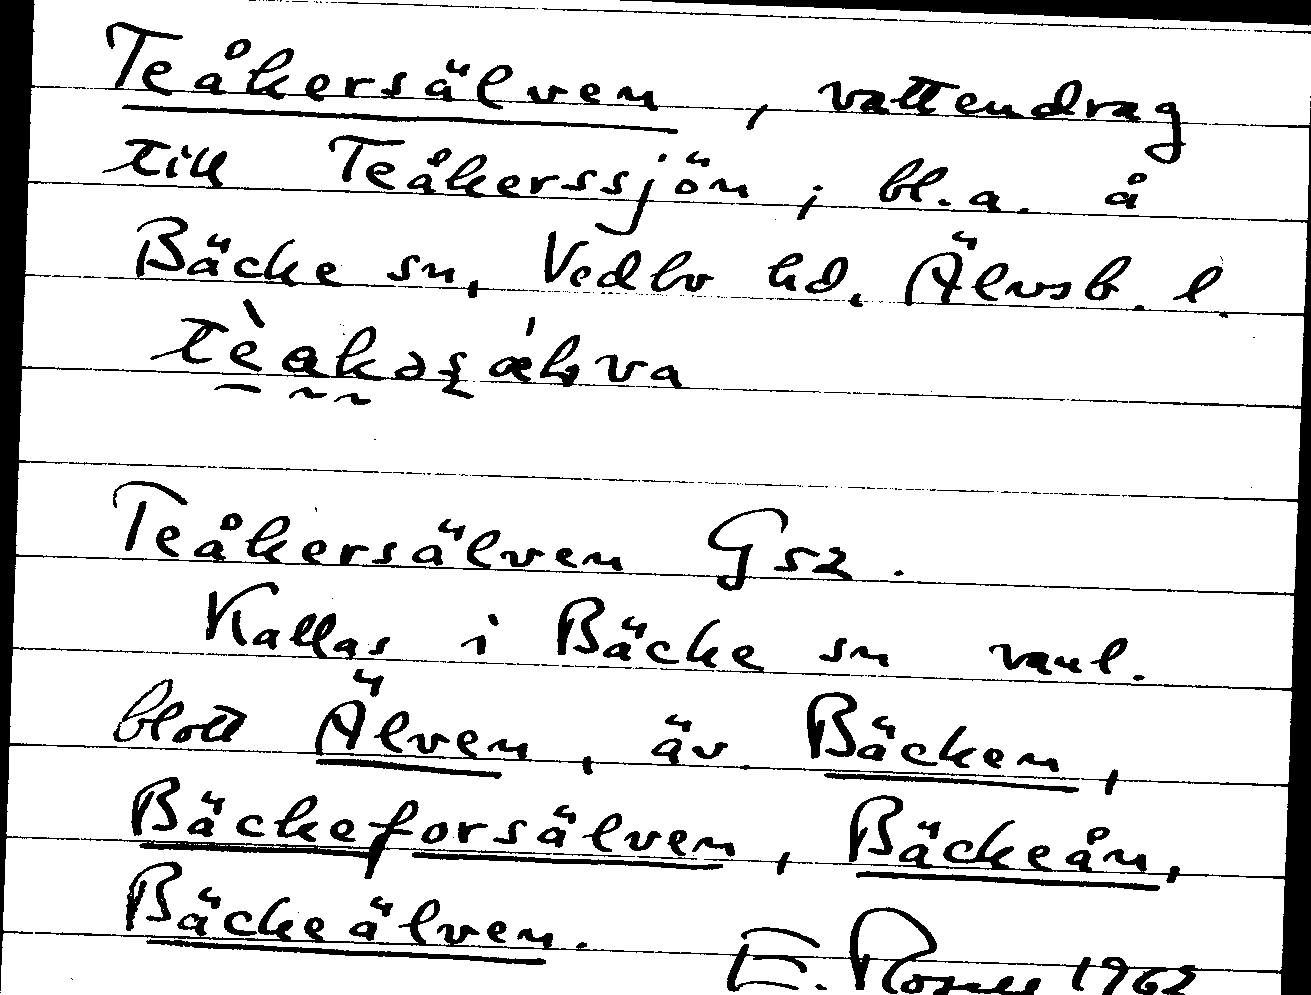 Teåkersälven, vattendrag
till Teåkerssjön; bl.a. å
Bäcke sn, Vedbo hd, Älvsb. l.
Teåkersälven Gsz.
Kallas i Bäcke sn vanl.
blott Älven, äv. Bäcken,
Bäckeforsälven, Bäckeån,
Bäckeälven.
E. 1962